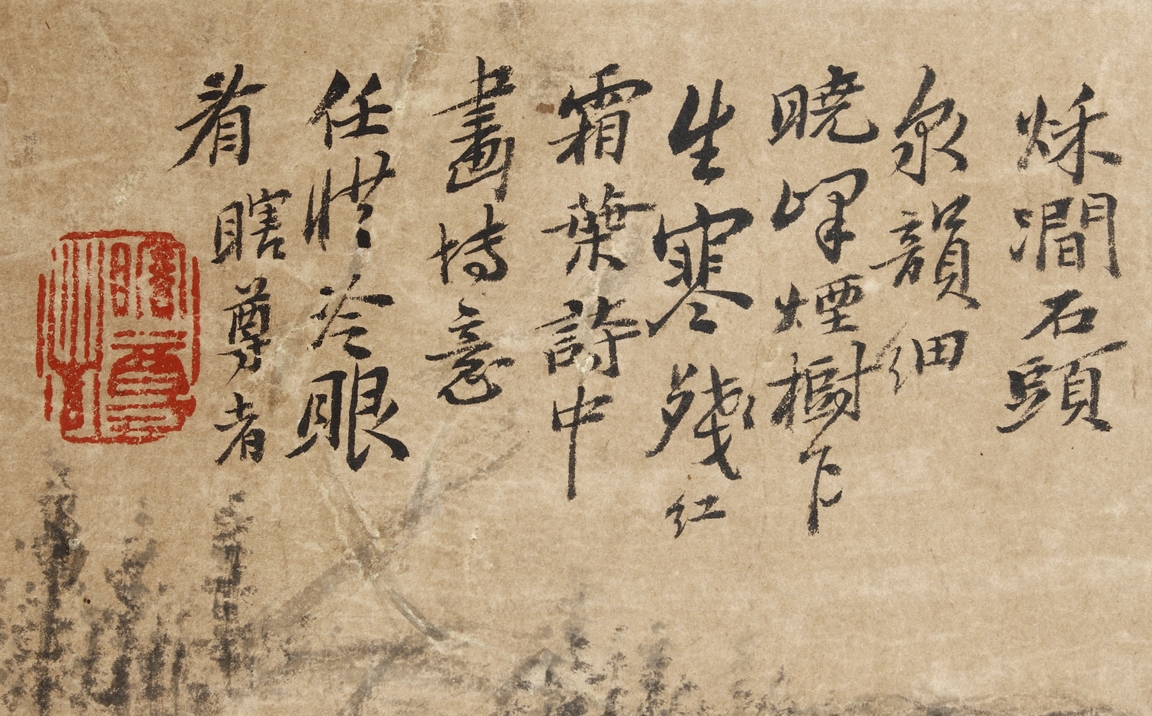 秋澗石頭
泉韻細
曉峰煙樹乍
生寒殘紅
霜葉詩中
畫意
任冷眼
看瞎尊者